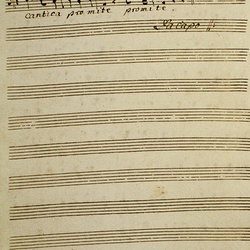 cantica promite promite.
Da Capo